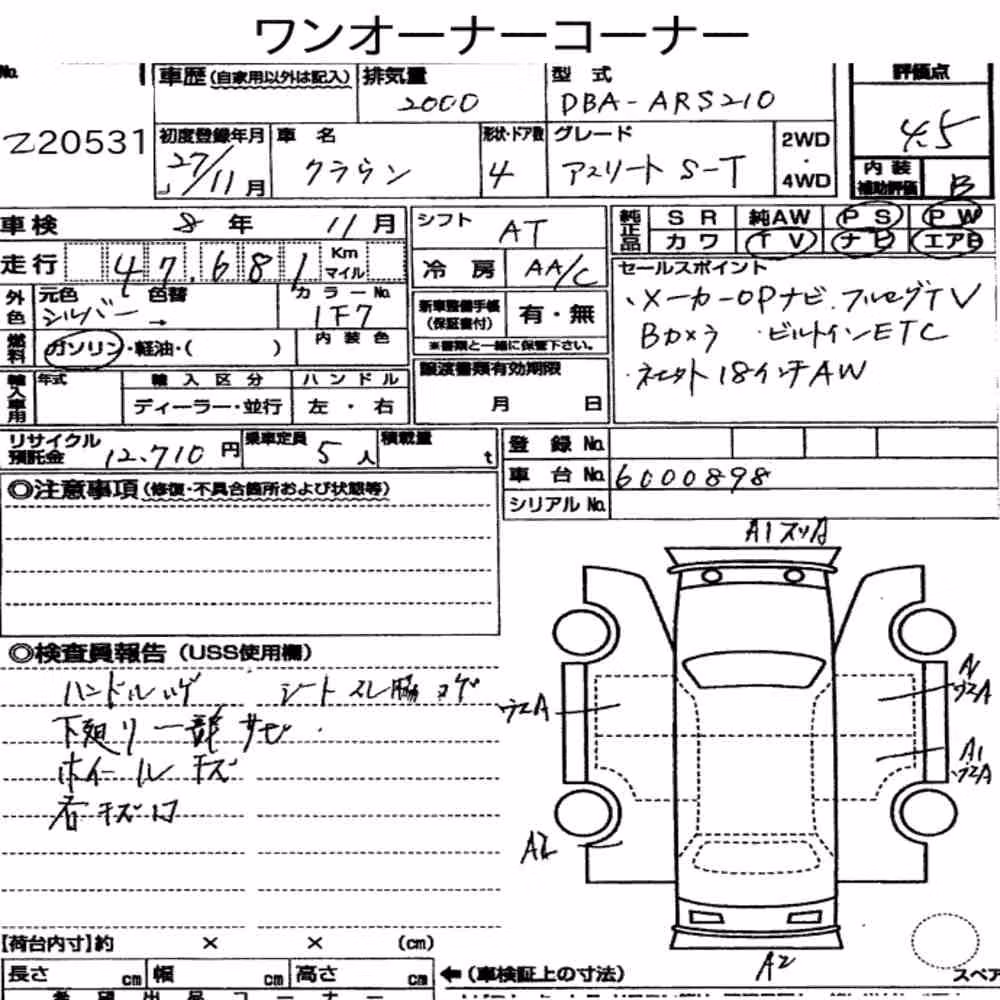 ワンオーナーコーナー
No. 車歴(自家用以外は記入) 排気量 型式 評価点
Z20531 2000 DBA-ARS210 4.5
初度登録年月 車名 形状・ドア数 グレード 2WD・4WD 内装補助評価 B
27/11月 クラウン 4 アスリート S-T
車検 8年 11月 シフト AT 純正品 SR 純AW PS PW
カワ TV ナビ エアB
走行 47,681 Km マイル 冷房 AA/C
セールスポイント
外色 元色 シルバー → 色替 カラーNo. 1F7
新車整備手帳(保証書付) 有・無
※書類と一緒に保管下さい。
・メーカーOPナビ.フルセグTV
Bカメラ ・ビルトインETC
・18インチAW
燃料 ガソリン・軽油・( ) 内装色
輸入車用 年式 輸入区分 ハンドル
ディーラー・並行 左・右
譲渡書類有効期限
月 日
リサイクル預託金 12,710円 乗車定員 5人 積載量 t
登録No.
車台No. 6000898
シリアルNo.
◎注意事項(修復・不具合箇所および状態等)
A1
◎検査員報告(USS使用欄)
ハンドル シートスレ脇コゲ
下廻り一部サビ
ホイールキズ
A1
ウエA
ウエA
A1
ウエA
A2
A2
【荷台内寸】約 × × (cm)
長さ cm 幅 cm 高さ cm ←(車検証上の寸法)
スペア
希望出品コーナー